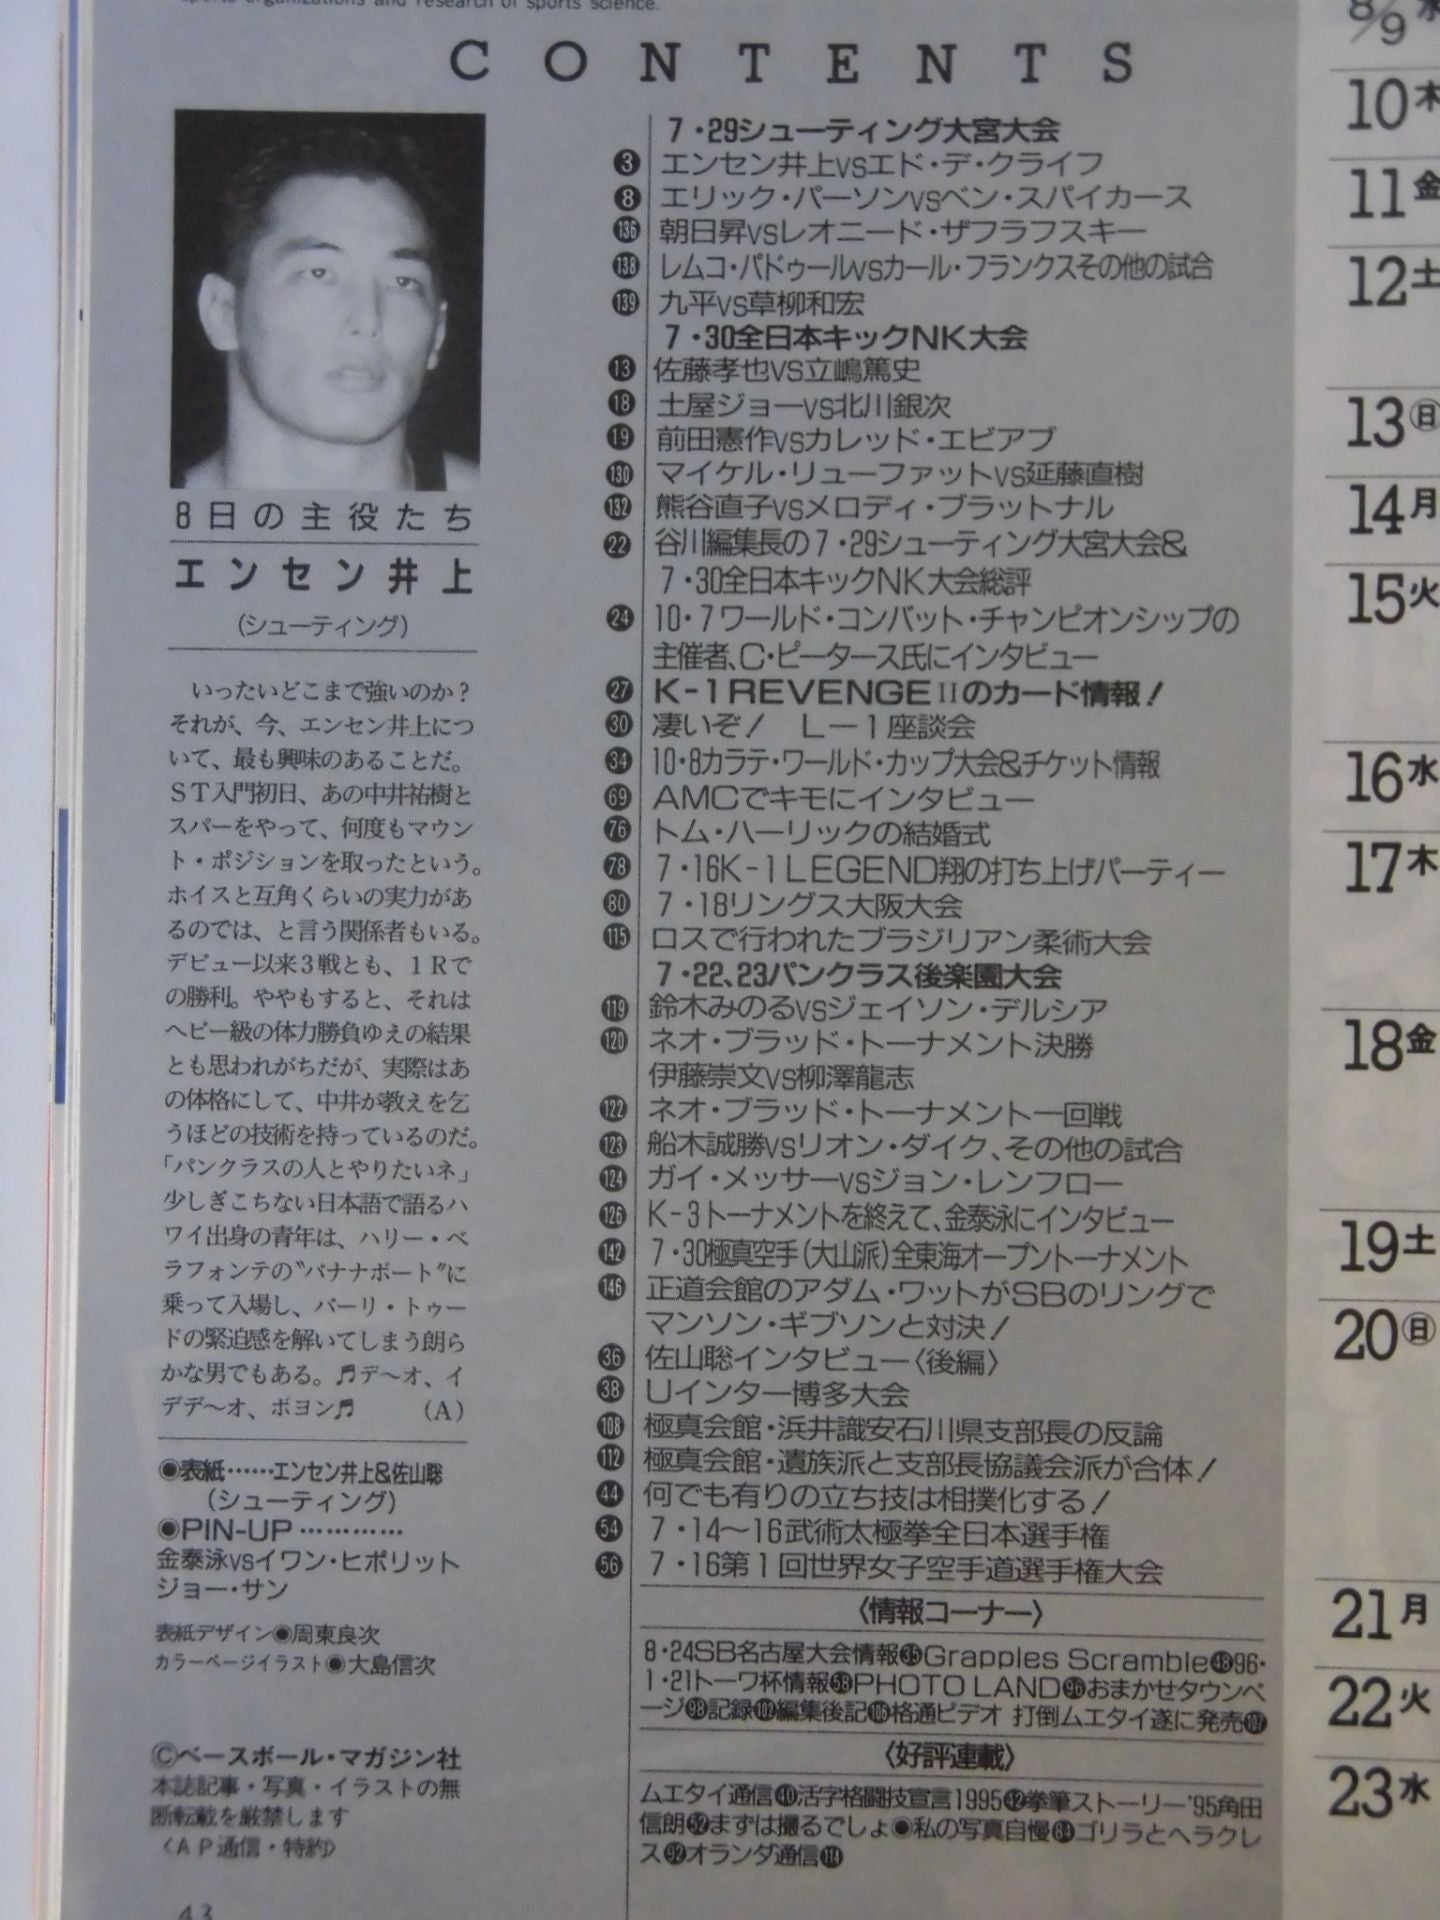 sports organizations and research of sports science.
CONTENTS
8日の主役たち
エンセン井上
(シューティング)
いったいどこまで強いのか?
それが、今、エンセン井上につ
いて、最も興味のあることだ。
ST入門初日、あの中井祐樹と
スパーをやって、何度もマウン
ト・ポジションを取ったという。
ホイスと互角くらいの実力があ
るのでは、と言う関係者もいる。
デビュー以来3戦とも、1Rで
の勝利。ややもすると、それは
ヘビー級の体力勝負ゆえの結果
とも思われがちだが、実際はあ
の体格にして、中井が教えを乞
うほどの技術を持っているのだ。
「パンクラスの人とやりたいネ」
少しぎこちない日本語で語るハ
ワイ出身の青年は、ハリー・ベ
ラフォンテの〝バナナボート〟に
乗って入場し、バーリ・トゥー
ドの緊迫感を解いてしまう朗ら
かな男でもある。♬デ〜オ、イ
デデ〜オ、ボヨン♬ (A)
◉表紙……エンセン井上&佐山聡
(シューティング)
◉PIN-UP…………
金泰泳vsイワン・ヒポリット
ジョー・サン
表紙デザイン◉周東良次
カラーページイラスト◉大島信次
©ベースボール・マガジン社
本誌記事・写真・イラストの無
断転載を厳禁します
〈AP通信・特約〉
43
7・29シューティング大宮大会
3 エンセン井上vsエド・デ・クライフ
8 エリック・パーソンvsベン・スパイカース
136 朝日昇vsレオニード・ザフラフスキー
138 レムコ・パドゥールvsカール・フランクスその他の試合
139 九平vs草柳和宏
7・30全日本キックNK大会
13 佐藤孝也vs立嶋篤史
18 土屋ジョーvs北川銀次
19 前田憲作vsカレッド・エビアブ
130 マイケル・リューファットvs延藤直樹
132 熊谷直子vsメロディ・ブラットナル
22 谷川編集長の7・29シューティング大宮大会&
7・30全日本キックNK大会総評
24 10・7ワールド・コンバット・チャンピオンシップの
主催者、C・ピータース氏にインタビュー
27 K-1 REVENGE IIのカード情報!
30 凄いぞ! L—1座談会
34 10・8カラテ・ワールド・カップ大会&チケット情報
69 AMCでキモにインタビュー
76 トム・ハーリックの結婚式
78 7・16K-1 LEGEND翔の打ち上げパーティー
80 7・18リングス大阪大会
115 ロスで行われたブラジリアン柔術大会
7・22、23パンクラス後楽園大会
119 鈴木みのるvsジェイソン・デルシア
120 ネオ・ブラッド・トーナメント決勝
伊藤崇文vs柳澤龍志
122 ネオ・ブラッド・トーナメント一回戦
123 船木誠勝vsリオン・ダイク、その他の試合
124 ガイ・メッサーvsジョン・レンフロー
126 K-3トーナメントを終えて、金泰泳にインタビュー
142 7・30極真空手(大山派)全東海オープントーナメント
146 正道会館のアダム・ワットがSBのリングで
マンソン・ギブソンと対決!
36 佐山聡インタビュー〈後編〉
38 Uインター博多大会
108 極真会館・浜井識安石川県支部長の反論
112 極真会館・遺族派と支部長協議会派が合体!
44 何でも有りの立ち技は相撲化する!
54 7・14〜16武術太極拳全日本選手権
56 7・16第1回世界女子空手道選手権大会
〈情報コーナー〉
8・24SB名古屋大会情報35Grapples Scramble48 96・
1・21トーワ杯情報58PHOTO LAND96おまかせタウンペ
ージ98記録102編集後記106格通ビデオ 打倒ムエタイ遂に発売107
〈好評連載〉
ムエタイ通信40活字格闘技宣言1995 42拳筆ストーリー'95角田
信朗52まずは撮るでしょ◉私の写真自慢84ゴリラとヘラクレ
ス92オランダ通信114
8/9水
10木
11金
12土
13日
14月
15火
16水
17木
18金
19土
20日
21月
22火
23水